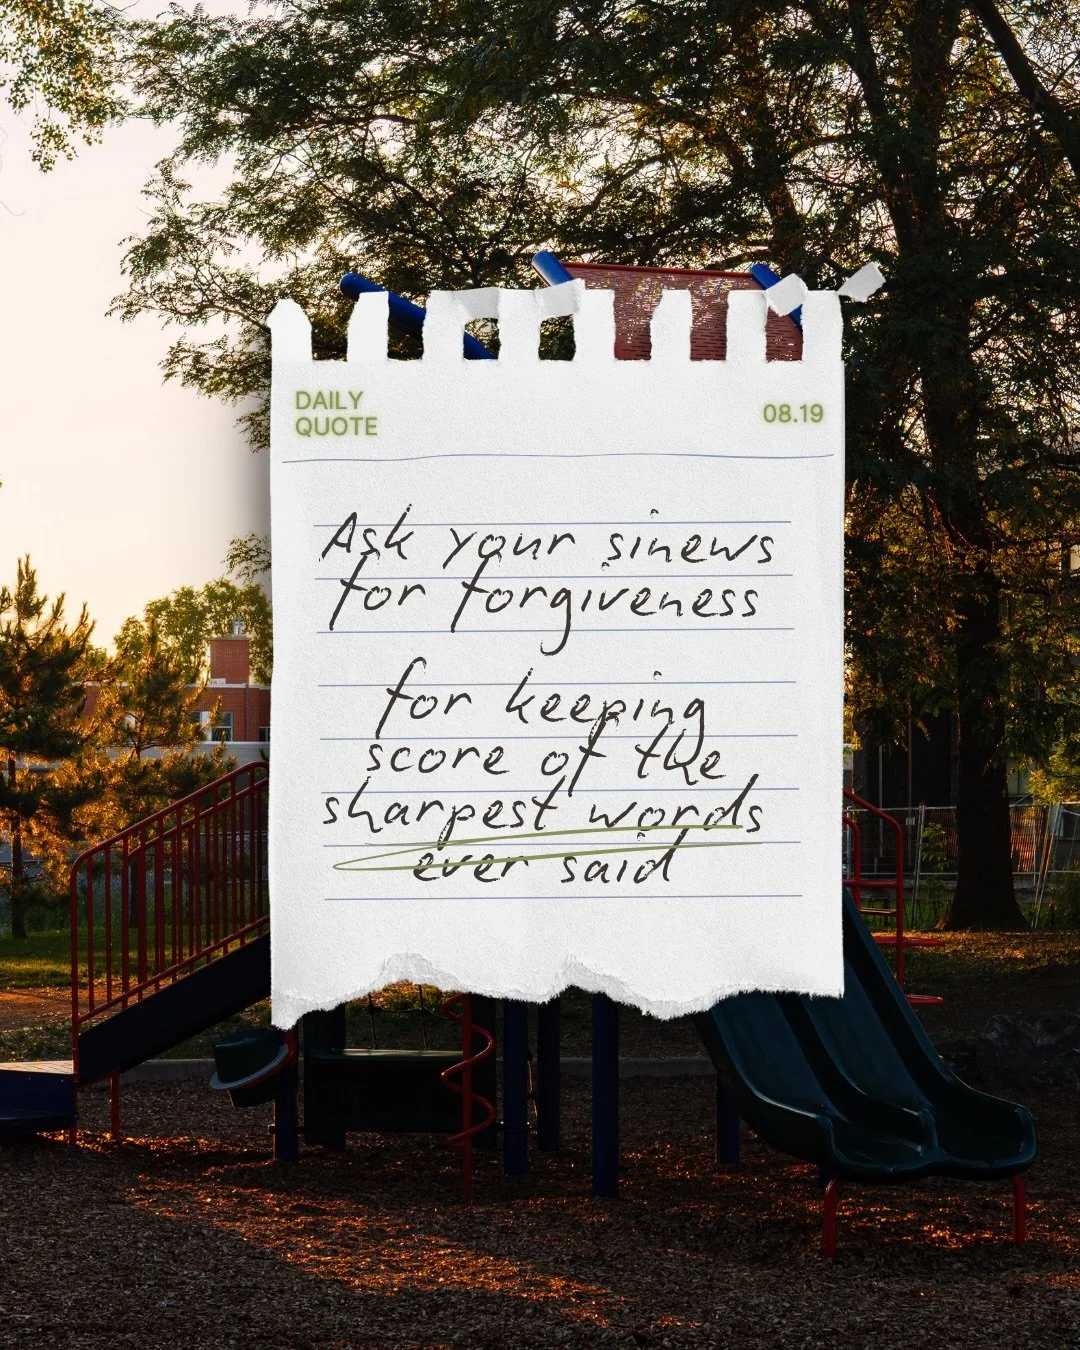 DAILY
QUOTE
08.19
Ask your sinews
for forgiveness
for keeping
score of the
sharpest words
ever said